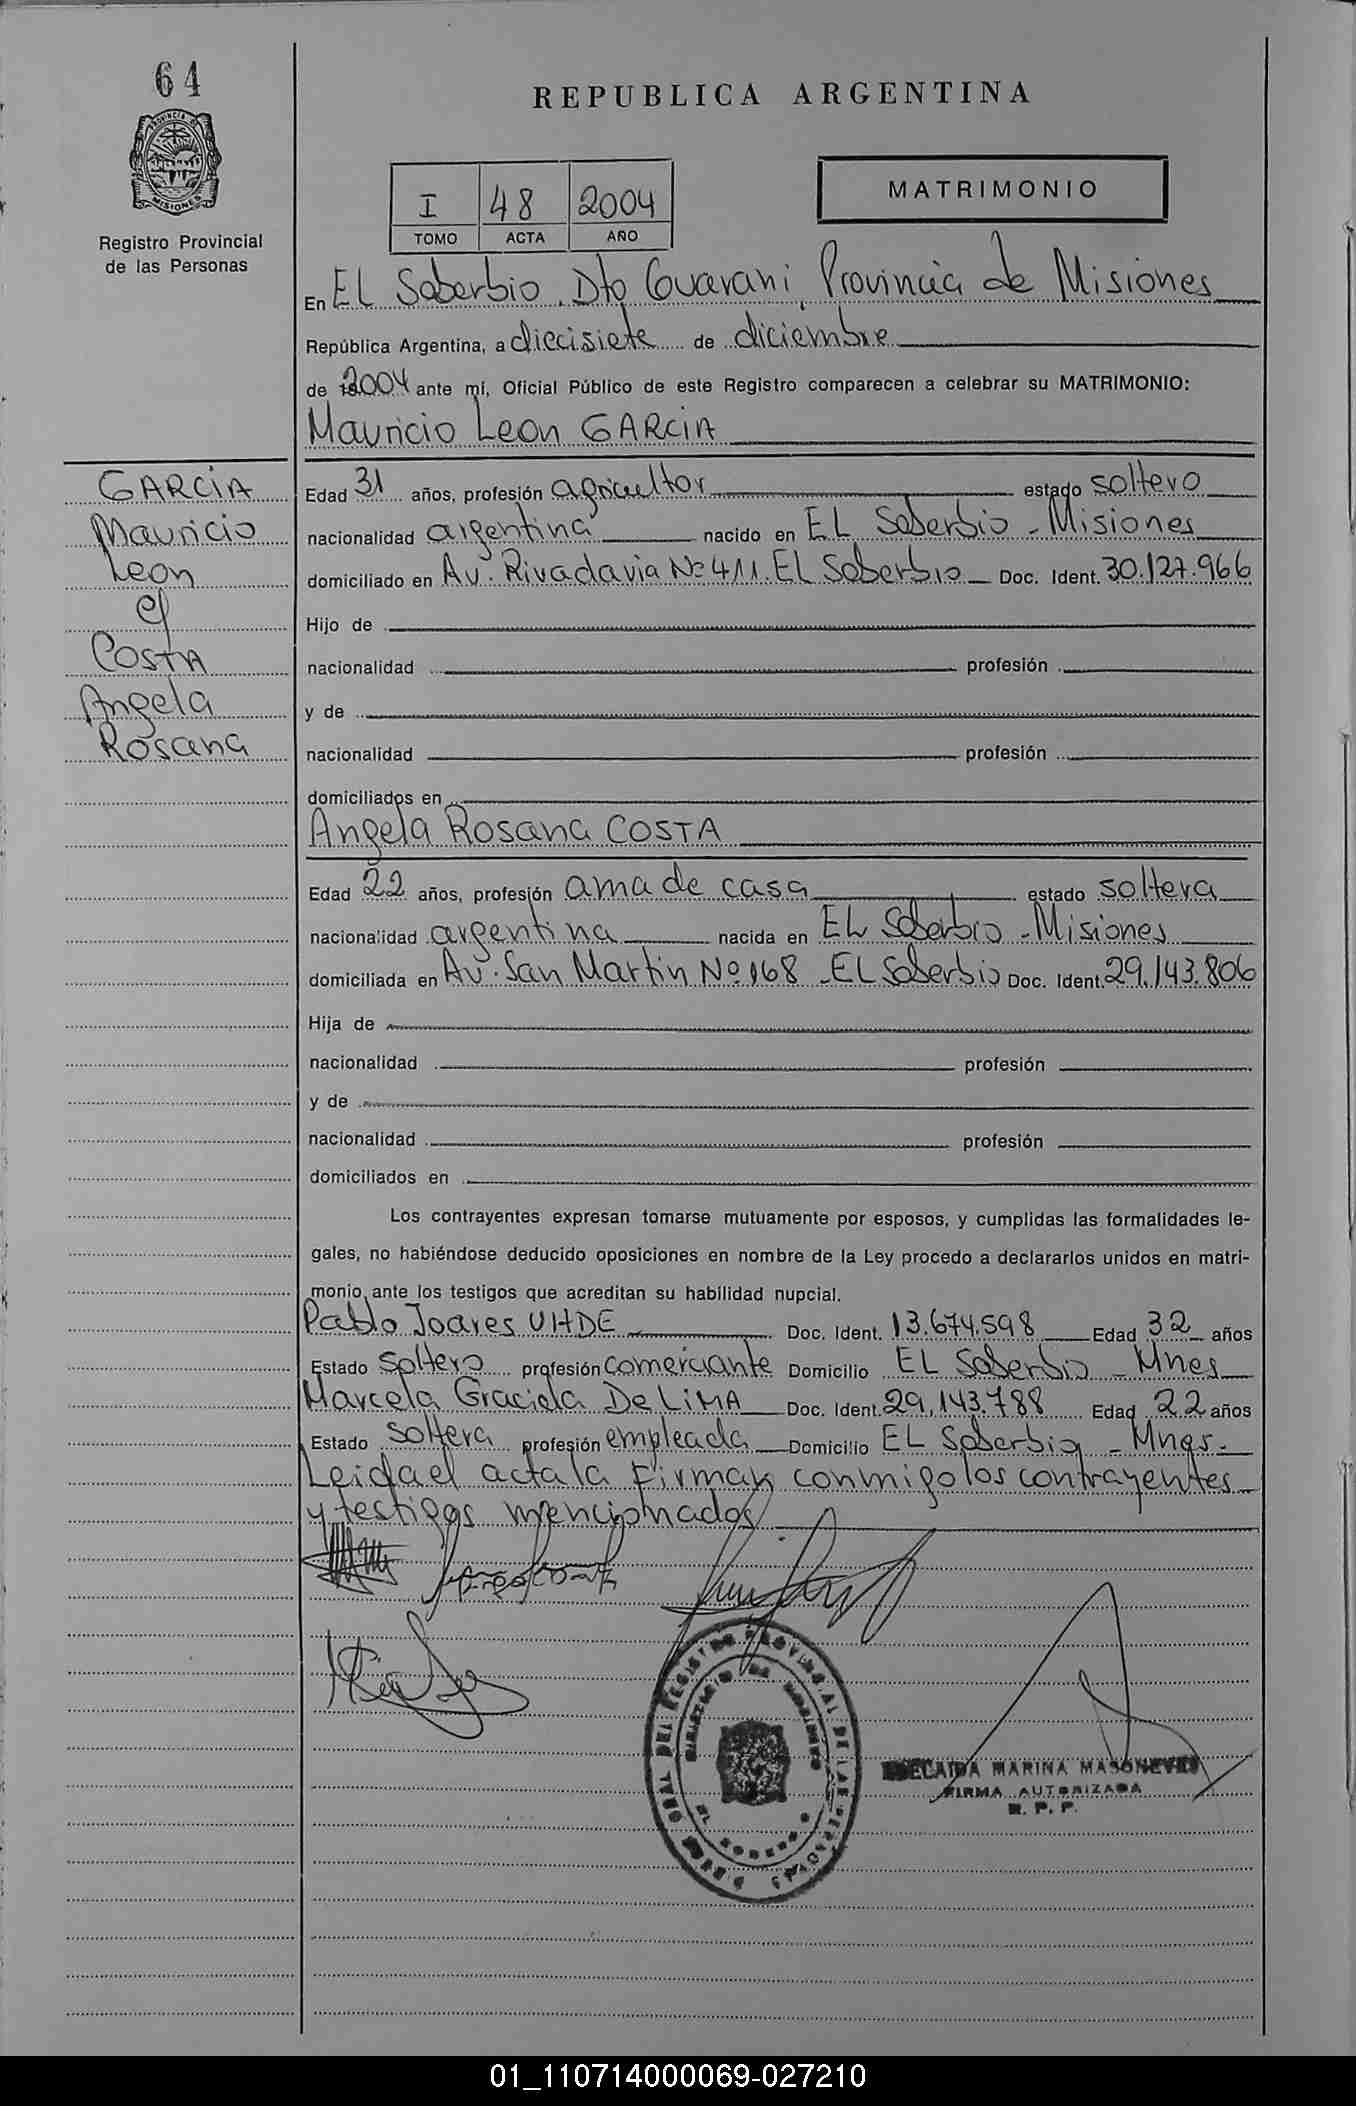 64
PROVINCIA DE
MISIONES
Registro Provincial
de las Personas
REPUBLICA ARGENTINA
I 48 2004
TOMO ACTA AÑO
MATRIMONIO
En EL Soberbio, Dto Guarani, Provincia de Misiones
República Argentina, a diecisiete de diciembre
de 2004 ante mí, Oficial Público de este Registro comparecen a celebrar su MATRIMONIO:
Mauricio Leon GARCIA
GARCIA
Mauricio
Leon
c/
COSTA
Angela
Rosana
Edad 31 años, profesión agricultor estado soltero
nacionalidad argentina nacido en EL Soberbio - Misiones
domiciliado en Av. Rivadavia Nº 411. EL Soberbio Doc. Ident. 30.127.966
Hijo de
nacionalidad profesión
y de
nacionalidad profesión
domiciliados en
Angela Rosana COSTA
Edad 22 años, profesión ama de casa estado soltera
nacionalidad argentina nacida en EL Soberbio - Misiones
domiciliada en Av. San Martin Nº 168 - EL Soberbio Doc. Ident. 29.143.806
Hija de
nacionalidad profesión
y de
nacionalidad profesión
domiciliados en
Los contrayentes expresan tomarse mutuamente por esposos, y cumplidas las formalidades le-
gales, no habiéndose deducido oposiciones en nombre de la Ley procedo a declararlos unidos en matri-
monio ante los testigos que acreditan su habilidad nupcial.
Pablo Joares UHDE Doc. Ident. 13.674.598 Edad 32 años
Estado soltero profesión comerciante Domicilio EL Soberbio - Mnes
Marcela Graciela De LiMA Doc. Ident. 29.143.788 Edad 22 años
Estado soltera profesión empleada Domicilio EL Soberbio - Mnes.
Leida el acta la Firman conmigo los contrayentes
y testigos mencionados
DEL REGISTRO PROVINCIAL DE LAS PERSONAS
MARINA
FIRMA AUTORIZADA
R. P. P.
01_110714000069-027210